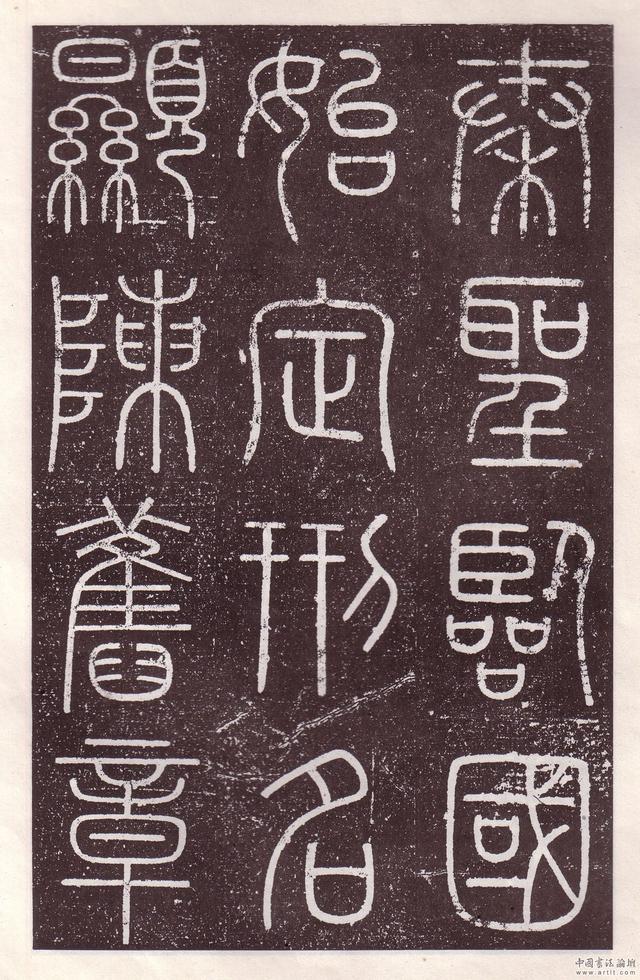 秦聖臨國
始定刑名
顯陳舊章
中國書法論壇
www.artlt.com